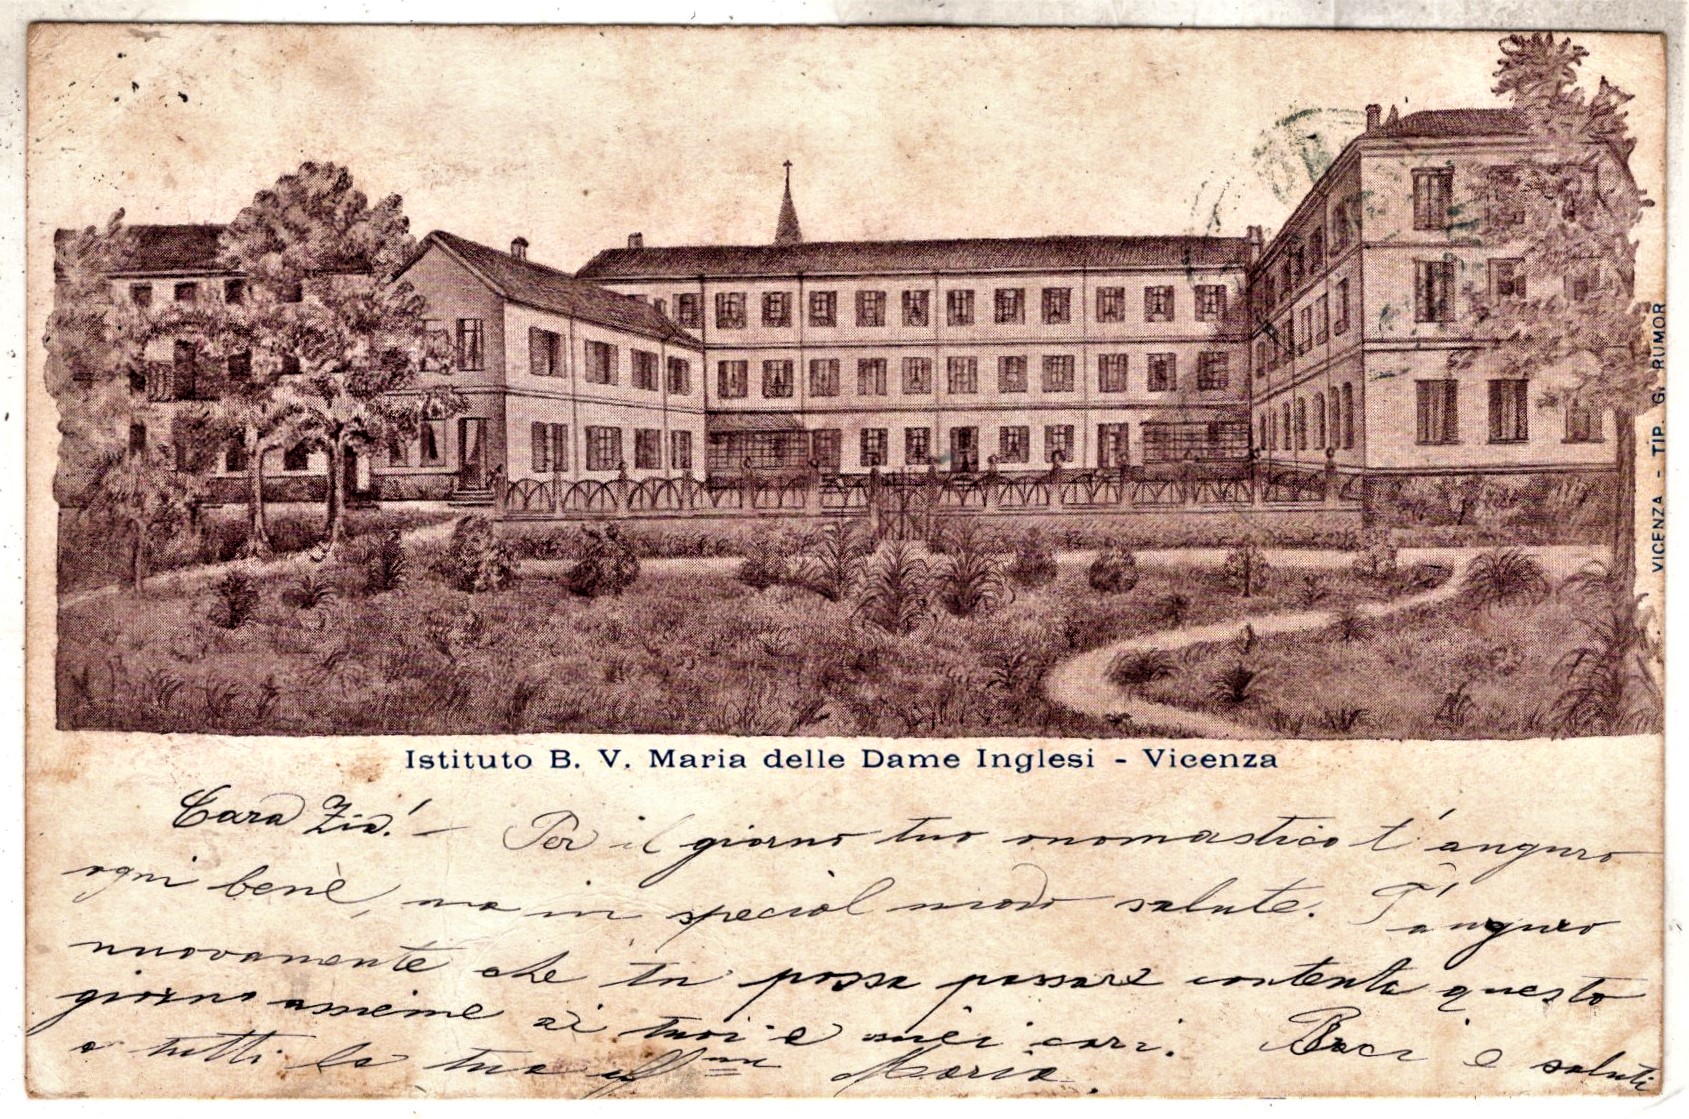 Istituto B. V. Maria delle Dame Inglesi - Vicenza
VICENZA - TIP. G. RUMOR
Cara Zia! - Per il giorno tuo onomastico t'anguro
ogni benè, ma in special modo salute. T'anguro
nuovamente che tu possa passare contenta questo
giorno assieme ai tuoi e miei cari. Baci e saluti
a tutti la tua aff.ma Maria.